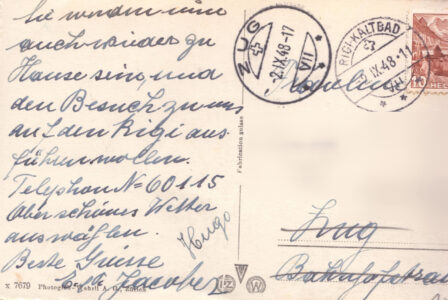 Sie werden nun
auch wieder zu
Hause sein, und
den Besuch zu uns
auf den Rigi aus-
führen wollen.
Telephon No 60115
Aber schönes Wetter
auswählen.
Beste Grüsse
Hugo
X 7679 Photogr.
Fabrication suisse
ZUG
-2.IX.48-17
VII
RIGI-KALTBAD
IX.48-11
10
Zug
Bahnhofstra
W